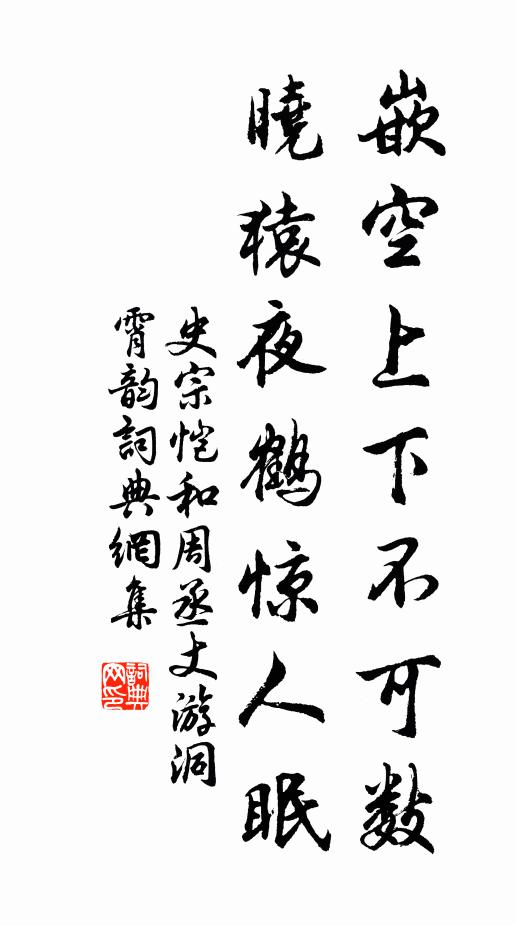 嵌空上下不可数
曉猿夜鶴惊人眠
史宗恺和周丞丈游洞
霄韵詞典網集
詞典
网印